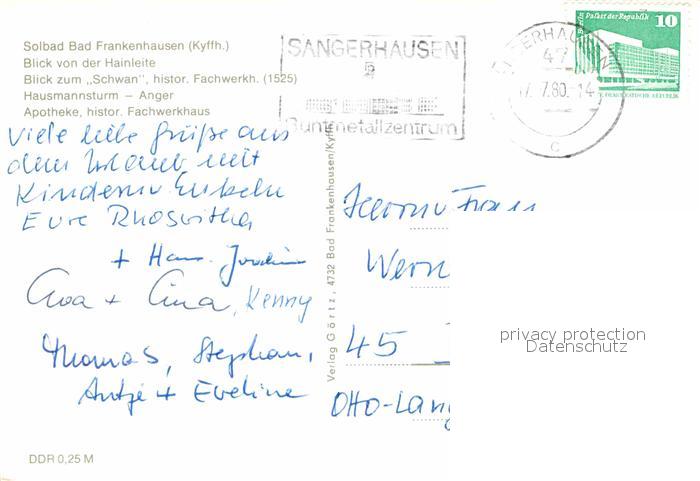 Solbad Bad Frankenhausen (Kyffh.)
Blick von der Hainleite
Blick zum „Schwan", histor. Fachwerkh. (1525)
Hausmannsturm – Anger
Apotheke, histor. Fachwerkhaus
SANGERHAUSEN
Buntmetallzentrum
SANGERHAUSEN
47
7.80.-14
c
Palast der Republik 10
DEMOKRATISCHE REPUBLIK
Viele liebe Grüße aus
dem Urlaub mit
Kindern u Enkeln
Eure Rhoswitha
+ Hans-Joachim
+ Gina, Kenny
Thomas, Stephan,
Antje + Eveline
Verlag Görtz, 4732 Bad Frankenhausen/Kyffh
Herrn u Frau
Wern
45
Otto-Lang
privacy protection
Datenschutz
DDR 0,25 M